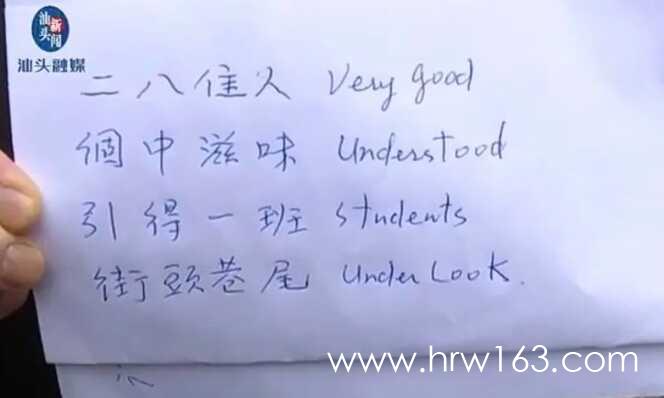 汕头
新闻
汕头融媒
二八佳人 Very good
個中滋味 Understood
引得一班 students
街頭巷尾 Under Look.
www.hrw163.com